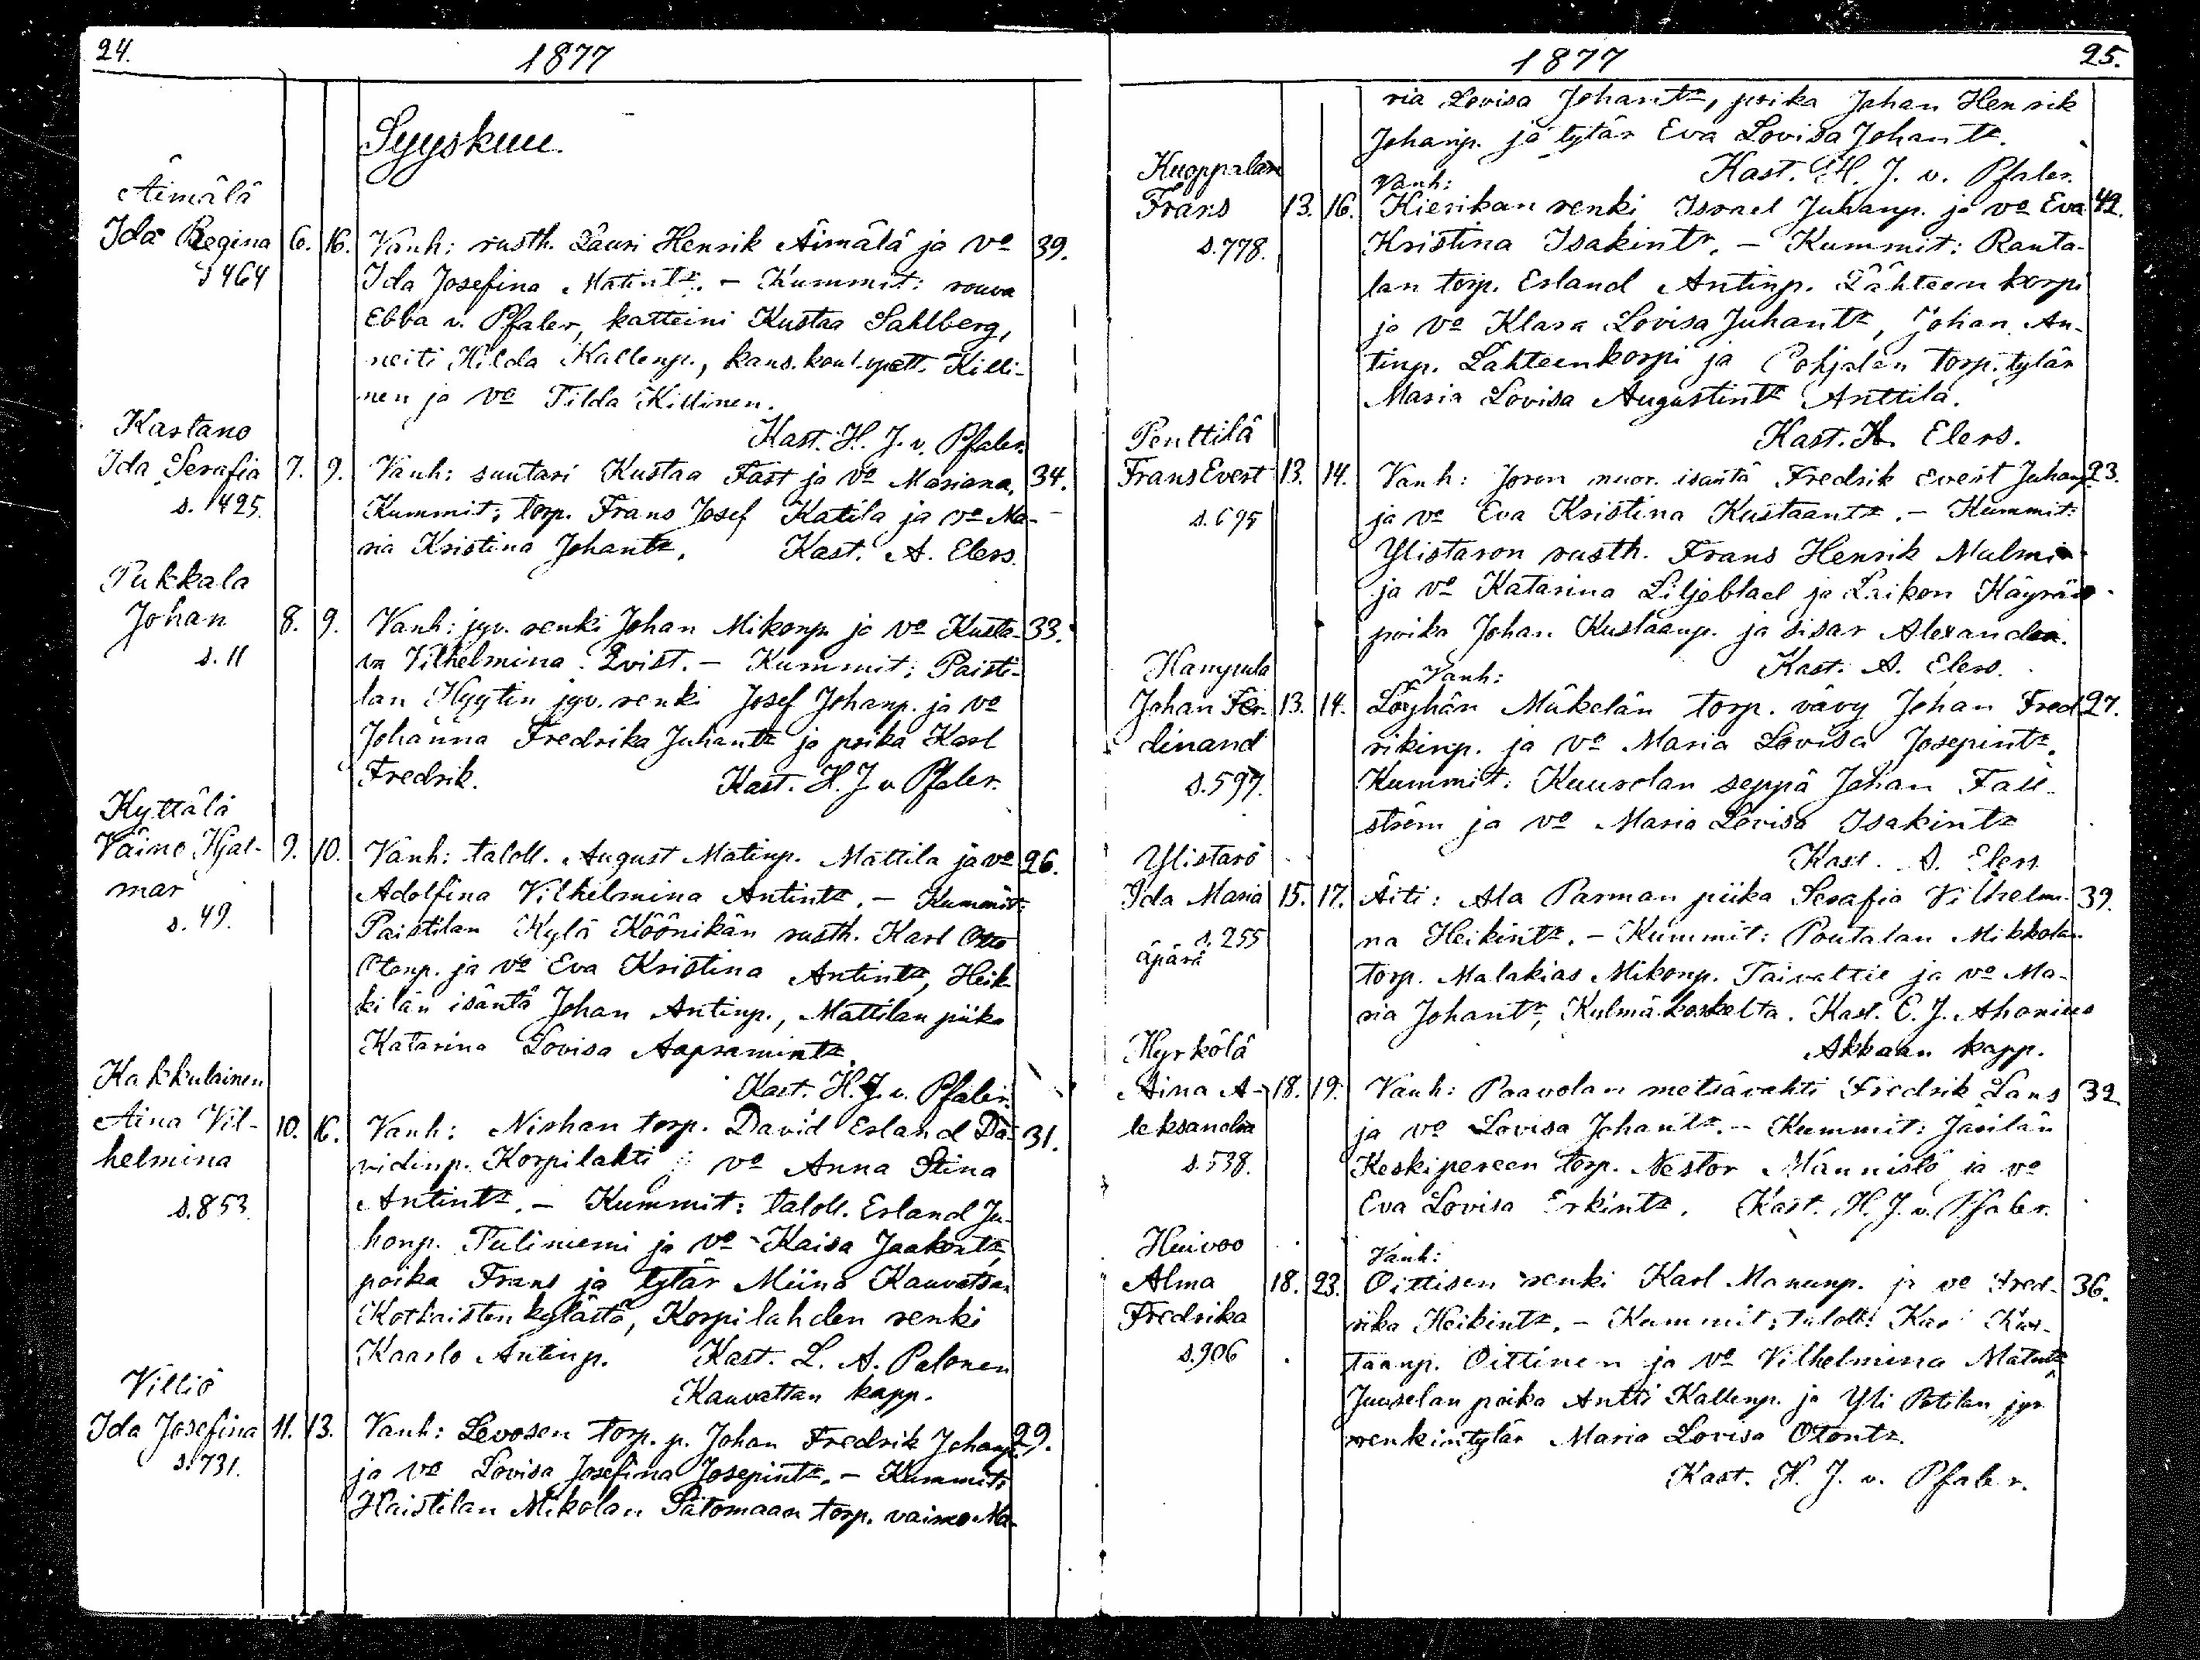 24.
1877
Syyskuu.
Äimälä
Ida Regina 6. 16. Vanh: rusth. Lauri Henrik Äimälä ja vo 39.
s 464
Ida Josefina Matintr. – Kummit: rouva
Ebba v. Pfaler, katteini Kustaa Sahlberg,
neiti Hilda Kallenp., kans.koul.opett. Killi-
nen ja vo Tilda Killinen.
Kast. H. J. v. Pfaler.
Kartano
Ida Serafia 7. 9. Vanh: suutari Kustaa Fast ja vo Mariana, 34.
s. 1425.
Kummit: torp. Frans Josef Katila ja vo Ma-
ria Kristina Johantr. Kast. A. Elers.
Pukkala
Johan 8. 9. Vanh: jyv. renki Johan Mikonp. ja vo Kusta- 33.
s. 11
va Vilhelmina Qvist. – Kummit: Paisti-
lan Hyytin jyv. renki Josef Johanp. ja vo
Johanna Fredrika Juhantr ja poika Karl
Fredrik. Kast. H. J. v. Pfaler.
Kyttälä
Väinö Hjal- 9. 10. Vanh: taloll. August Matinp. Mattila ja vo 26.
mar
s. 49.
Adolfina Vilhelmina Antintr. – Kummit:
Paistilan Kylä Köönikän rusth. Karl Otto
Otonp. ja vo Eva Kristina Antintr, Heik-
kilän isäntä Johan Antinp., Mattilan piika
Katarina Lovisa Aapramintr.
Kast. H. J. v. Pfaler.
Kakkulainen
Aina Vil- 10. 16. Vanh: Nirhan torp. David Erland Da- 31.
helmina
s. 853.
vidinp. Korpilahti ja vo Anna Stina
Antintr. – Kummit: taloll. Erland Ju-
honp. Puliniemi ja vo Kaisa Jaakontr,
poika Frans ja tytär Miina Kauvatsan
Kothaisten kylästä, Korpilahden renki
Kaarlo Antinp. Kast. L. A. Palonen
Kauvattan kapp.
Villiö
Ida Josefina 11. 13. Vanh: Levosen torp. p. Johan Fredrik Johanp. 29.
s. 731.
ja vo Lovisa Josefina Josepintr. – Kummit:
Haistilan Mikolan Satomaan torp. vaimo Ma-
1877
25.
ria Lovisa Johantr, poika Johan Henrik
Johanp. ja tytär Eva Lovisa Johantr.
Kast. H. J. v. Pfaler.
Kuoppala
Vanh:
Frans 13. 16. Kierikan renki Israel Juhanp. ja vo Eva 42.
s. 778.
Kristina Isakintr. – Kummit: Ranta-
lan torp. Erland Antinp. Lähteenkorpi
ja vo Klara Lovisa Juhantr, Johan An-
tinp. Lähteenkorpi ja Pohjalan torp. tytär
Maria Lovisa Augustintr Anttila.
Kast. A. Elers.
Penttilä
Frans Evert 13. 14. Vanh: Joron nuor. isäntä Fredrik Evert Juhanp. 23.
s. 695
ja vo Eva Kristina Kustaantr. – Kummit:
Ylistaron rusth. Frans Henrik Malmi
ja vo Katarina Liljeblad ja Laikon Käyrän
poika Johan Kustaanp. ja sisar Alexandra.
Kast. A. Elers.
Kamppula
Vanh:
Johan Fer- 13. 14. Löyhän Mäkelän torp. vävy Johan Fred- 27.
dinand
s. 597.
rikinp. ja vo Maria Lovisa Josepintr.
Kummit: Kuurolan seppä Johan Fäll-
ström ja vo Maria Lovisa Isakintr
Kast. A. Elers
Ylistaro
Ida Maria 15. 17. Äiti: Ala Parman piika Serafia Vilhelmi- 39.
s. 255
äpärä
na Heikintr. – Kummit: Poutalan Mikkolan
torp. Malakias Mikonp. Taivaltie ja vo Ma-
ria Johantr, Kulmäkoskelta. Kast. C. J. Ahonius
Akkaan kapp.
Kyrkölä
Aina A- 18. 19. Vanh: Paavolan metsävahti Fredrik Lans 32.
leksandra
s. 538.
ja vo Lovisa Johantr. – Kummit: Järilän
Keskipereen torp. Nestor Männistö ja vo
Eva Lovisa Erkintr. Kast. H. J. v. Pfaler.
Huivoo
Vanh:
Alma 18. 23. Oittisen renki Karl Manunp. ja vo Fred- 36.
Fredrika
s. 906
rika Heikintr. – Kummit: taloll. Karl Kus-
taanp. Oittinen ja vo Vilhelmina Matintr,
Juuselan poika Antti Kallenp. ja Yli Potilan jyv.
renkintytär Maria Lovisa Otontr.
Kast. H. J. v. Pfaler.